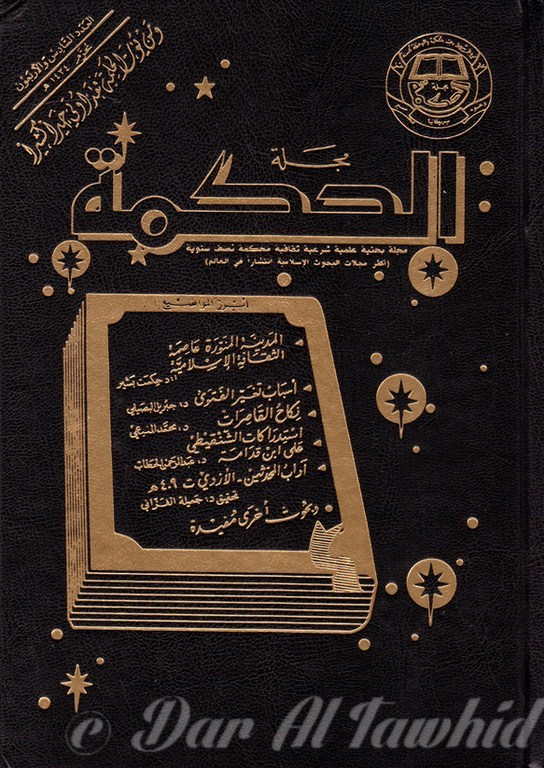 العدد السادس والأربعون
محرم ١٤٣٤ هـ
ومن يؤت الحكمة فقد أوتي خيراً كثيراً
مجلة
الحكمة
مجلة بحثية علمية شرعية ثقافية محكمة نصف سنوية
(أكثر مجلات البحوث الإسلامية انتشاراً في العالم)
أبرز المواضيع
المدينة المنورة عاصمة
الثقافة الإسلامية
أ.د حكمت بشير
أسباب تغير الفتوى د. جبريل البصيلي
نكاح القاصرات د. محمد
استدراكات الشنقيطي
على ابن قدامة د. عبدالرحمن الحطاب
آداب المحدثين - الأزدي ت ٤٠٩ هـ
تحقيق د. جميلة الغزاني
وبحوث أخرى مفيدة
© Dar Al Tawhid